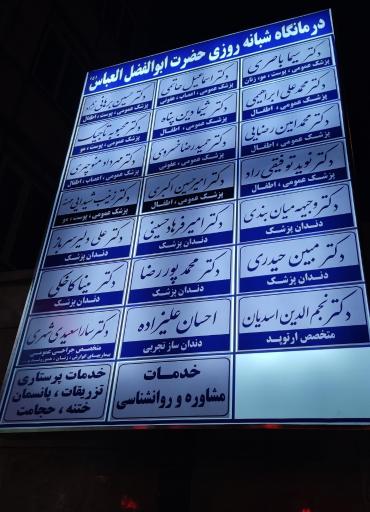 درمانگاه شبانه روزی حضرت ابوالفضل العباس (ع)
دکتر سیما باصری
پزشک عمومی ، پوست ، مو، زنان
دکتر اسماعیل حاتمی
پزشک عمومی ، اعصاب ، عفونی
دکتر حسین
پزشک عمومی ، پوست ، اطفال
دکتر محمدعلی ابراهیمی
پزشک عمومی ، اطفال
دکتر شیما دین پناه
پزشک عمومی ، اطفال
دکتر محبوبه
پزشک عمومی ، پوست ، مو
دکتر محمدامین رضایی
پزشک عمومی ، اطفال
دکتر حمیدرضا خسروی
پزشک عمومی ، عفونی
دکتر مهرداد منوچهری
پزشک عمومی ، اعصاب ، اطفال
دکتر نوید توفیقی راد
پزشک عمومی ، اطفال
دکتر امیرحسین اکبری
پزشک عمومی ، اطفال
دکتر
پزشک عمومی ، پوست ، مو
دکتر وجیهه میان بندی
دندان پزشک
دکتر امیر فرهاد حسینی
دندان پزشک
دکتر علی دلیر سرباز
دندان پزشک
دکتر مبین حیدری
دندان پزشک
دکتر محمد پوررضا
دندان پزشک
دکتر مینا کاخکی
دندان پزشک
دکتر نجم الدین اسدیان
متخصص ارتوپد
احسان علیزاده
دندان ساز تجربی
دکتر سارا سعیدی
متخصص جراحی عمومی
خدمات
مشاوره و روانشناسی
خدمات پرستاری
تزریقات ، پانسمان
ختنه ، حجامت